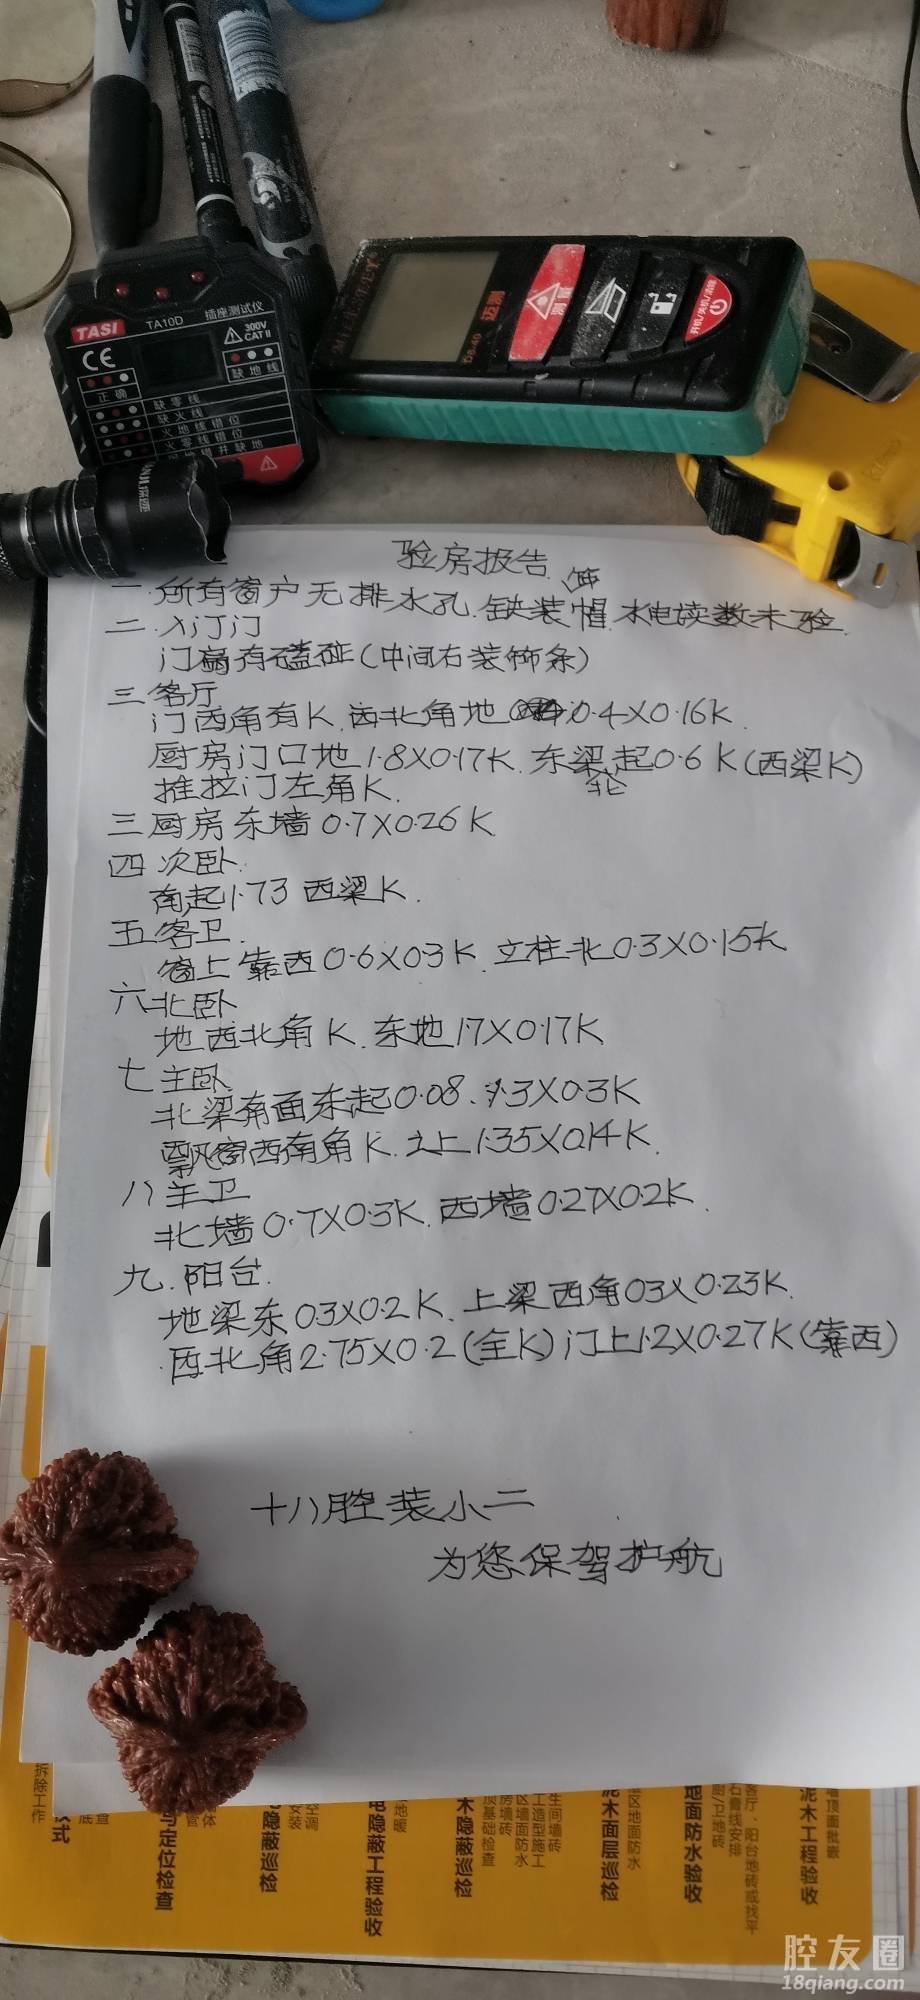 TASI
TA10D
插座测试仪
CE
300V
CAT II
正确
缺地线
缺零线
缺火线
火地线错位
火零线错位
迈测
DS-40
测量
开机/关机/清除
验房报告
一.所有窗户无排水孔.缺装饰帽.水电读数未验.
二.入门门
门扇有磕碰(中间右装饰条)
三客厅
门西角有K.西北角地0.4X0.16K.
厨房门口地1.8X0.17K.东梁起0.6K(西梁K)
轮
推拉门左角K.
三厨房东墙0.7X0.26K
四次卧.
南起1.73西梁K.
五客卫.
窗上靠西0.6X0.3K.立柱北0.3X0.15K
六北卧
地西北角K.东地1.7X0.17K
七主卧
北梁南面东起0.08.1.3X0.3K
飘窗西南角K.上1.35X0.14K.
八主卫
北墙0.7X0.3K.西墙0.27X0.2K.
九.阳台.
地梁东0.3X0.2K.上梁西角0.3X0.23K.
西北角2.75X0.2(全K)门上1.2X0.27K(靠西)
十八腔装小二
为您保驾护航
拆除工作
与定位检查
电隐蔽巡检
电隐蔽工程验收
木隐蔽巡检
泥木面层巡检
地面防水验收
泥木工程验收
腔友圈
18qiang.com